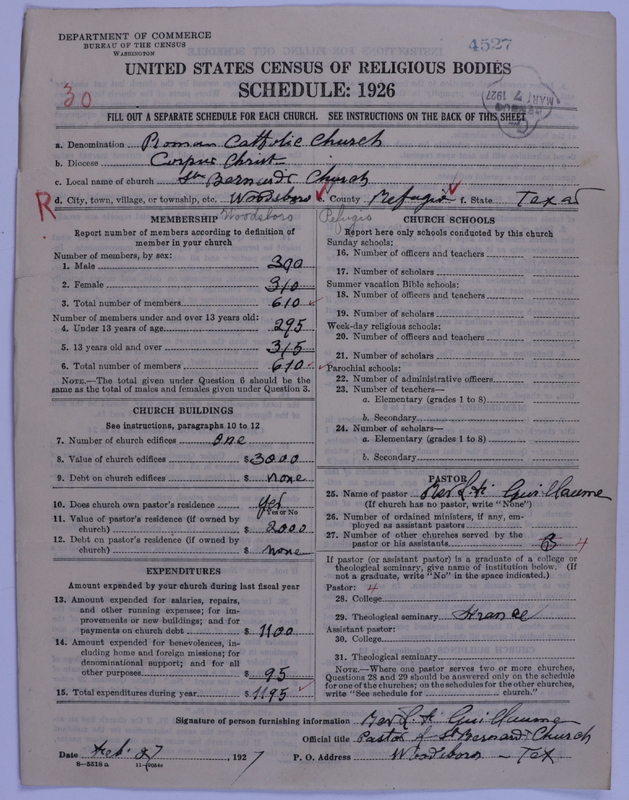 DEPARTMENT OF COMMERCE
BUREAU OF THE CENSUS
WASHINGTON
4527
UNITED STATES CENSUS OF RELIGIOUS BODIES
SCHEDULE: 1926
30
MAR 7 1927
FILL OUT A SEPARATE SCHEDULE FOR EACH CHURCH. SEE INSTRUCTIONS ON THE BACK OF THIS SHEET
a. Denomination Roman Catholic Church
b. Diocese Corpus Christi
c. Local name of church St Bernard Church
R d. City, town, village, or township, etc. Woodsboro e. County Refugio f. State Texas
Woodsboro Refugio
MEMBERSHIP
Report number of members according to definition of
member in your church
Number of members, by sex:
1. Male 300
2. Female 310
3. Total number of members 610
Number of members under and over 13 years old:
4. Under 13 years of age 295
5. 13 years old and over 315
6. Total number of members 610
NOTE.—The total given under Question 6 should be the
same as the total of males and females given under Question 3.
CHURCH BUILDINGS
See instructions, paragraphs 10 to 12
7. Number of church edifices one
8. Value of church edifices $3000
9. Debt on church edifices $ none
10. Does church own pastor's residence yes
Yes or No
11. Value of pastor's residence (if owned by
church) $ 2000
12. Debt on pastor's residence (if owned by
church) $ none
EXPENDITURES
Amount expended by your church during last fiscal year
13. Amount expended for salaries, repairs,
and other running expenses; for im-
provements or new buildings; and for
payments on church debt $ 1100
14. Amount expended for benevolences, in-
cluding home and foreign missions; for
denominational support; and for all
other purposes $ 95
15. Total expenditures during year $ 1195
CHURCH SCHOOLS
Report here only schools conducted by this church
Sunday schools:
16. Number of officers and teachers
17. Number of scholars
Summer vacation Bible schools:
18. Number of officers and teachers
19. Number of scholars
Week-day religious schools:
20. Number of officers and teachers
21. Number of scholars
Parochial schools:
22. Number of administrative officers
23. Number of teachers—
a. Elementary (grades 1 to 8)
b. Secondary
24. Number of scholars—
a. Elementary (grades 1 to 8)
b. Secondary
PASTOR
25. Name of pastor Rev L. Guillaume
(If church has no pastor, write "None")
26. Number of ordained ministers, if any, em-
ployed as assistant pastors
27. Number of other churches served by the
pastor or his assistants 3 4
If pastor (or assistant pastor) is a graduate of a college or
theological seminary, give name of institution below. (If
not a graduate, write "No" in the space indicated.)
Pastor: 4
28. College
29. Theological seminary France
Assistant pastor:
30. College
31. Theological seminary
NOTE.—Where one pastor serves two or more churches,
Questions 28 and 29 should be answered only on the schedule
for one of the churches; on the schedules for the other churches,
write "See schedule for church."
Signature of person furnishing information Rev L. Guillaume
Official title Pastor of St Bernard Church
Date Feb. 27, 1927 P. O. Address Woodsboro – Tex
8—5518 a